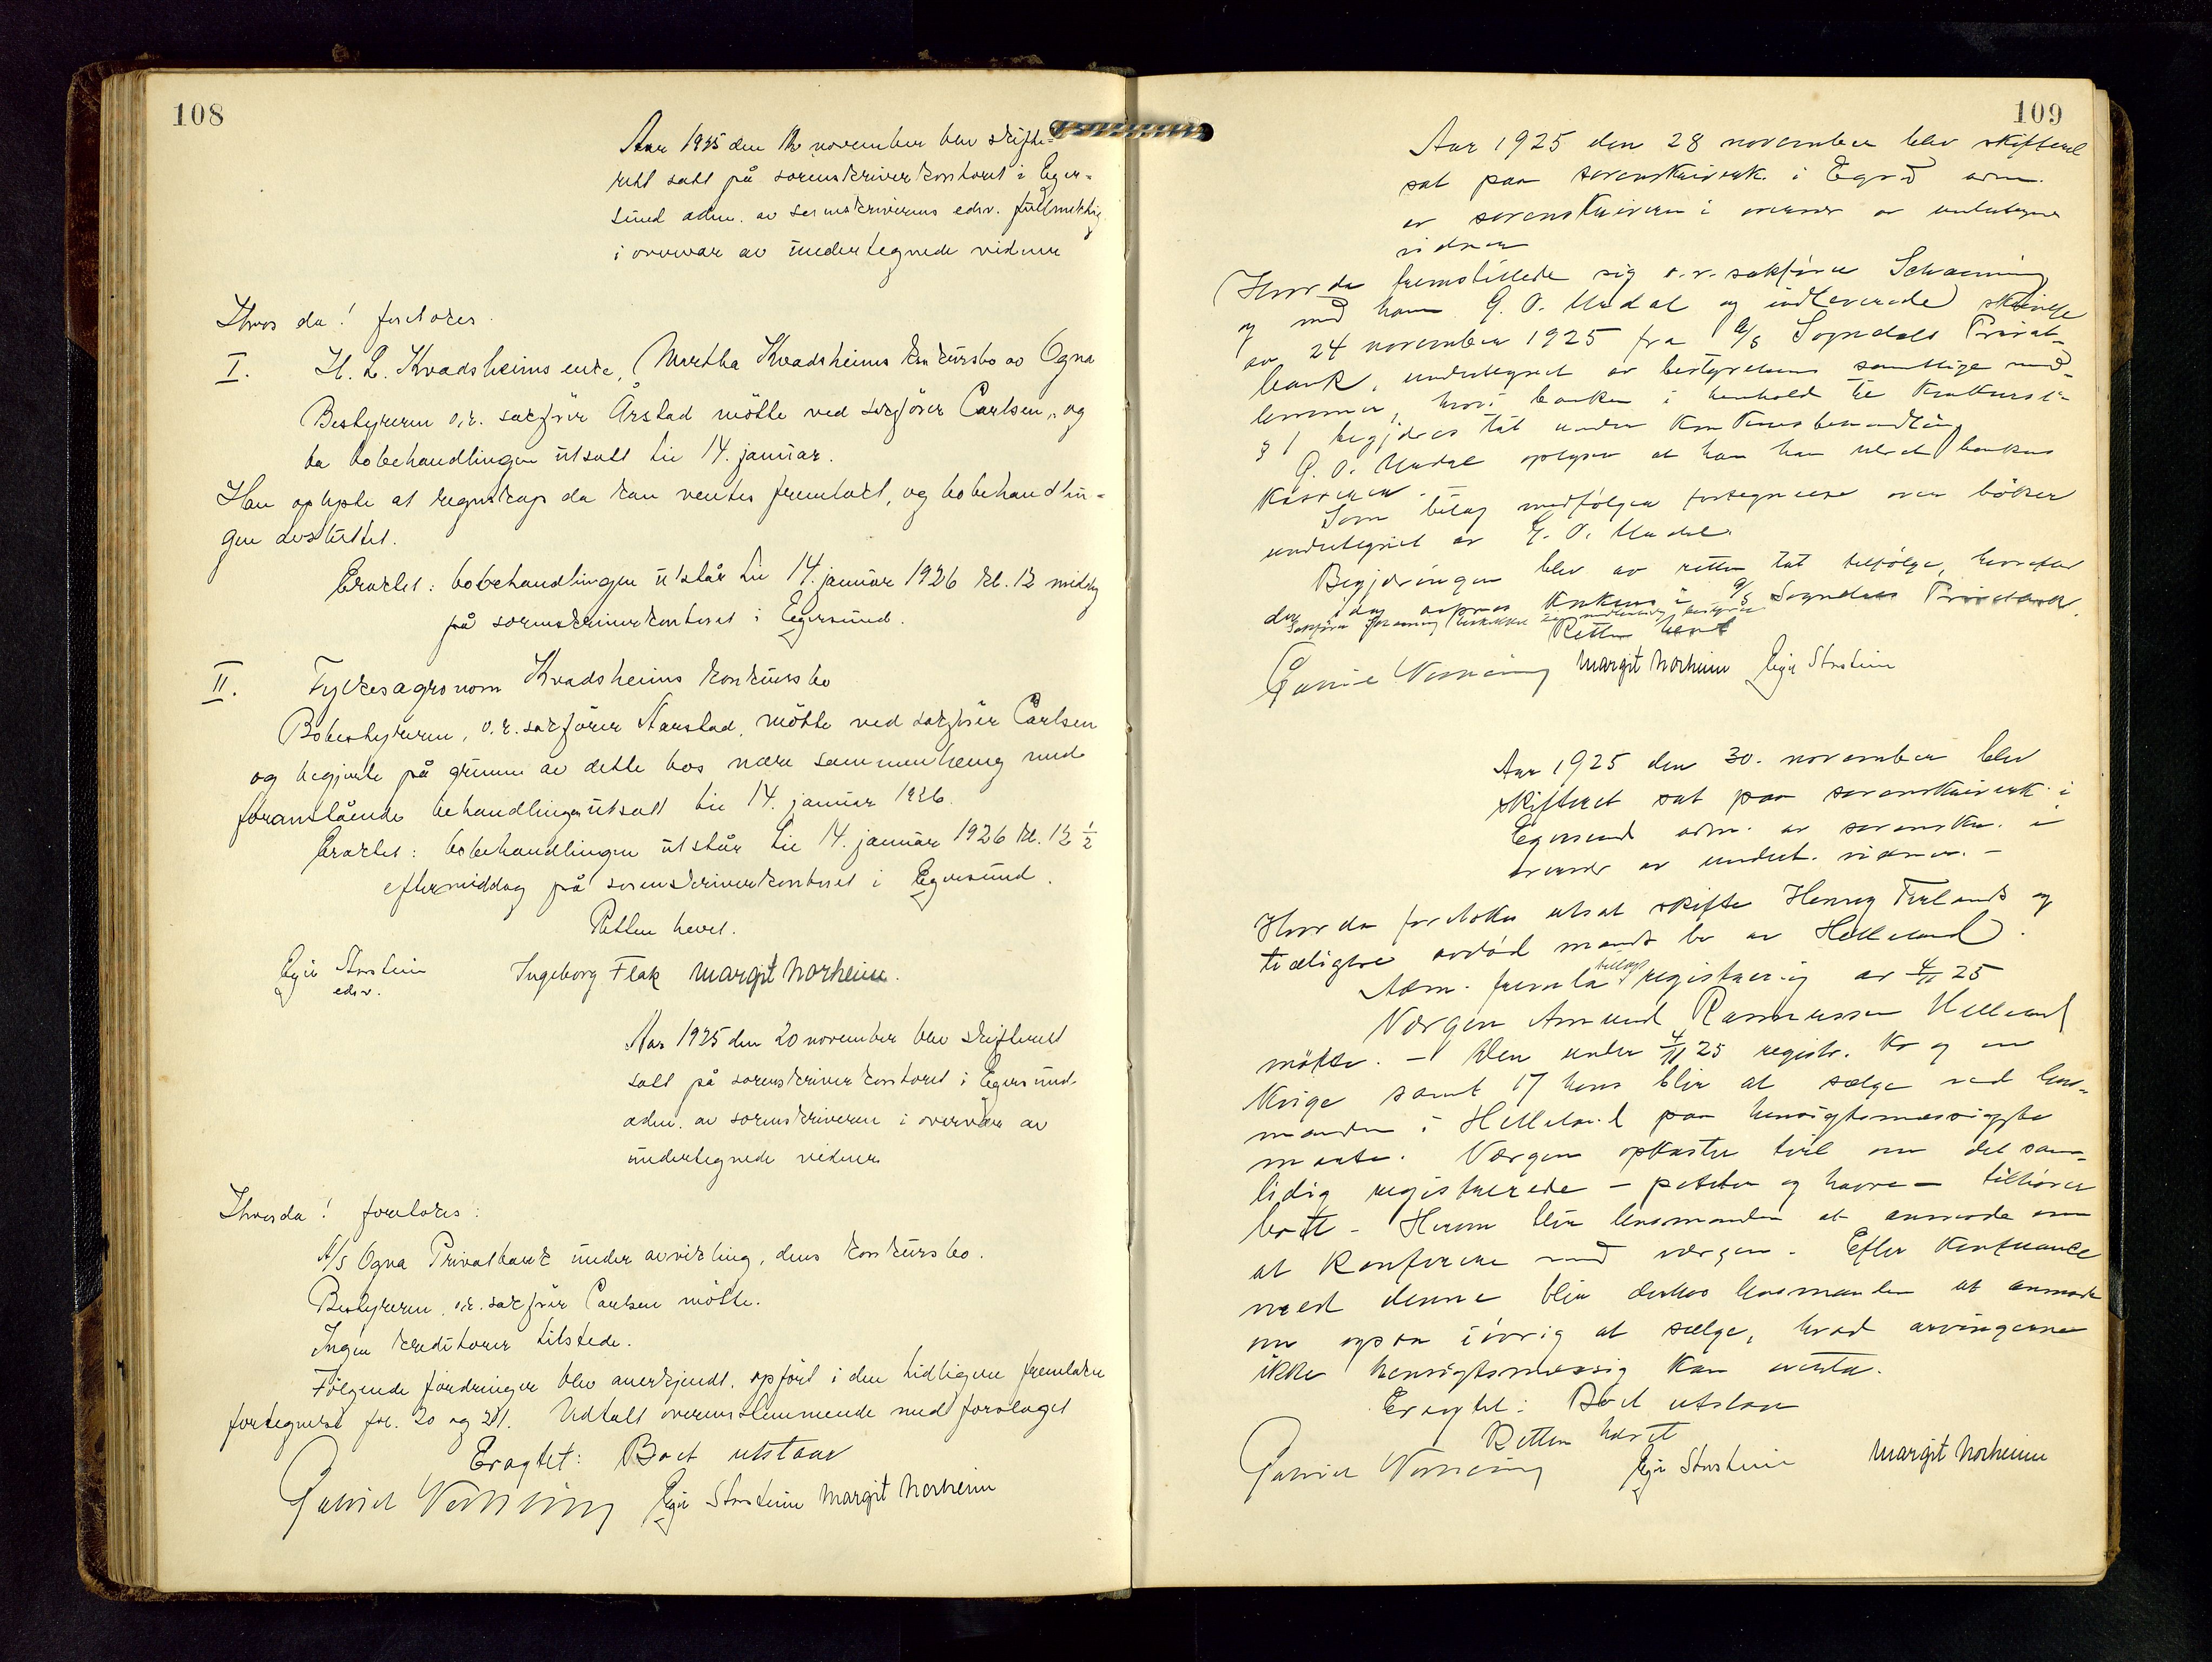 108
Aar 1925 den 12 november blev skifte-
rett satt på sorenskriverkontoret i Eger-
sund adm. av sorenskriverens edsv. fullmektig
i overvær av undertegnede vidner
Hvor da! foretokes
I. H. L. Kvadsheims enke, Martha Kvadsheims konkursbo av Ogna
Bestyreren o.r. sakfører Årstad møtte ved sakfører Carlsen, og
ba bobehandlingen utsatt til 14. januar.
Han oplyste at regnskap da kan ventes fremlakt, og bobehandlin-
gen avsluttet.
Eraktet: bobehandlingen utstår til 14. januar 1926 kl. 12 middag
på sorenskriverkontoret i Egersund.
II. Fylkesagronom Kvadsheims konkursbo
Bobestyreren, o.r. sakfører Aarstad, møtte ved sakfører Carlsen
og begjærte på grunn av dette bos nære sammenheng med
foranstående behandlingen utsatt til 14. januar 1926.
Eraktet: bobehandlingen utstår til 14. januar 1926 kl. 12 1/2
eftermiddag på sorenskriverkontoret i Egersund.
Retten hevet.
Ingeborg Flak Margit Norheim.
edsv.
Aar 1925 den 20 november blev skifterett
satt på sorenskriverkontoret i Egersund
adm. av sorenskriveren i overvær av
undertegnede vidner
Hvor da! foretokes:
A/S Ogna Privatbank under avvikling, dens konkursbo.
Bestyreren, o.r. sakfører Carlsen møtte.
Ingen kreditorer tilstede.
Følgende fordringer blev anerkjendt, opført i den tidligere fremlakte
fortegnelse for. 20 og 21. Uttalt overensstemmende med forslaget
Eragtet: Boet utstaar
Margit Norheim
109
Aar 1925 den 28 november blev skifteret
sat paa sorenskriverk. i Egrsd adm.
av sorenskriveren i overvær av undertegnede
vidner
Hvor da fremstillede sig o.r. sakfører Schanning
og med ham G. O. Urdal og indleverede skrivelse
av 24 november 1925 fra A/S Sogndals Privat-
bank, undertegnet av bestyrelsens samtlige med-
lemmer, hvori banken i henhold til Konkursl.
§ 1 begjæres tat under Konkursbehandling
G. O. Urdal oplyser at han har været bankens
kasserer. -
Som bilag medfølger fortegnelse over bøker
undertegnet av G. O. Urdal.
Begjæringen blev av retten tat tilfølge, hvorefter
der idag aapnes Konkurs i A/S Sogndals Privatbank.
Sakfører Schanning beskikkes til midlertidig bestyrer
Retten hævet
Margit Norheim
Aar 1925 den 30. november blev
skifteret sat paa sorenskriverk. i
Egersund adm. av sorenskr. i
overvær av undert. vidner. -
Hvor da foretokes utsat skifte Henrey Tverlands og
tidligere avdød mands bo av Helleland.
Adm. fremla tillægs registrering av 4/11 25
Værgen Amund Rasmussen Helleland
møtte. - Den under 4/11 25 registr. Ko og en
Kvige samt 17 høns blir at sælge ved lens-
manden i Helleland paa hensigtsmæssigste
maate. Værgen opkaster tvil om det sam-
tidig registrerede - poteter og havre - tilhører
boet - Herom blir lensmanden at anmode om
at konferere med værgen. Efter Konferance
med denne blir derhos lensmanden at anmode
om ogsaa iøvrig at sælge, hvad arvingerne
ikke hensigtsmæssig kan utlægges.
Eragtet: Boet utstaar
Retten hævet
Margit Norheim